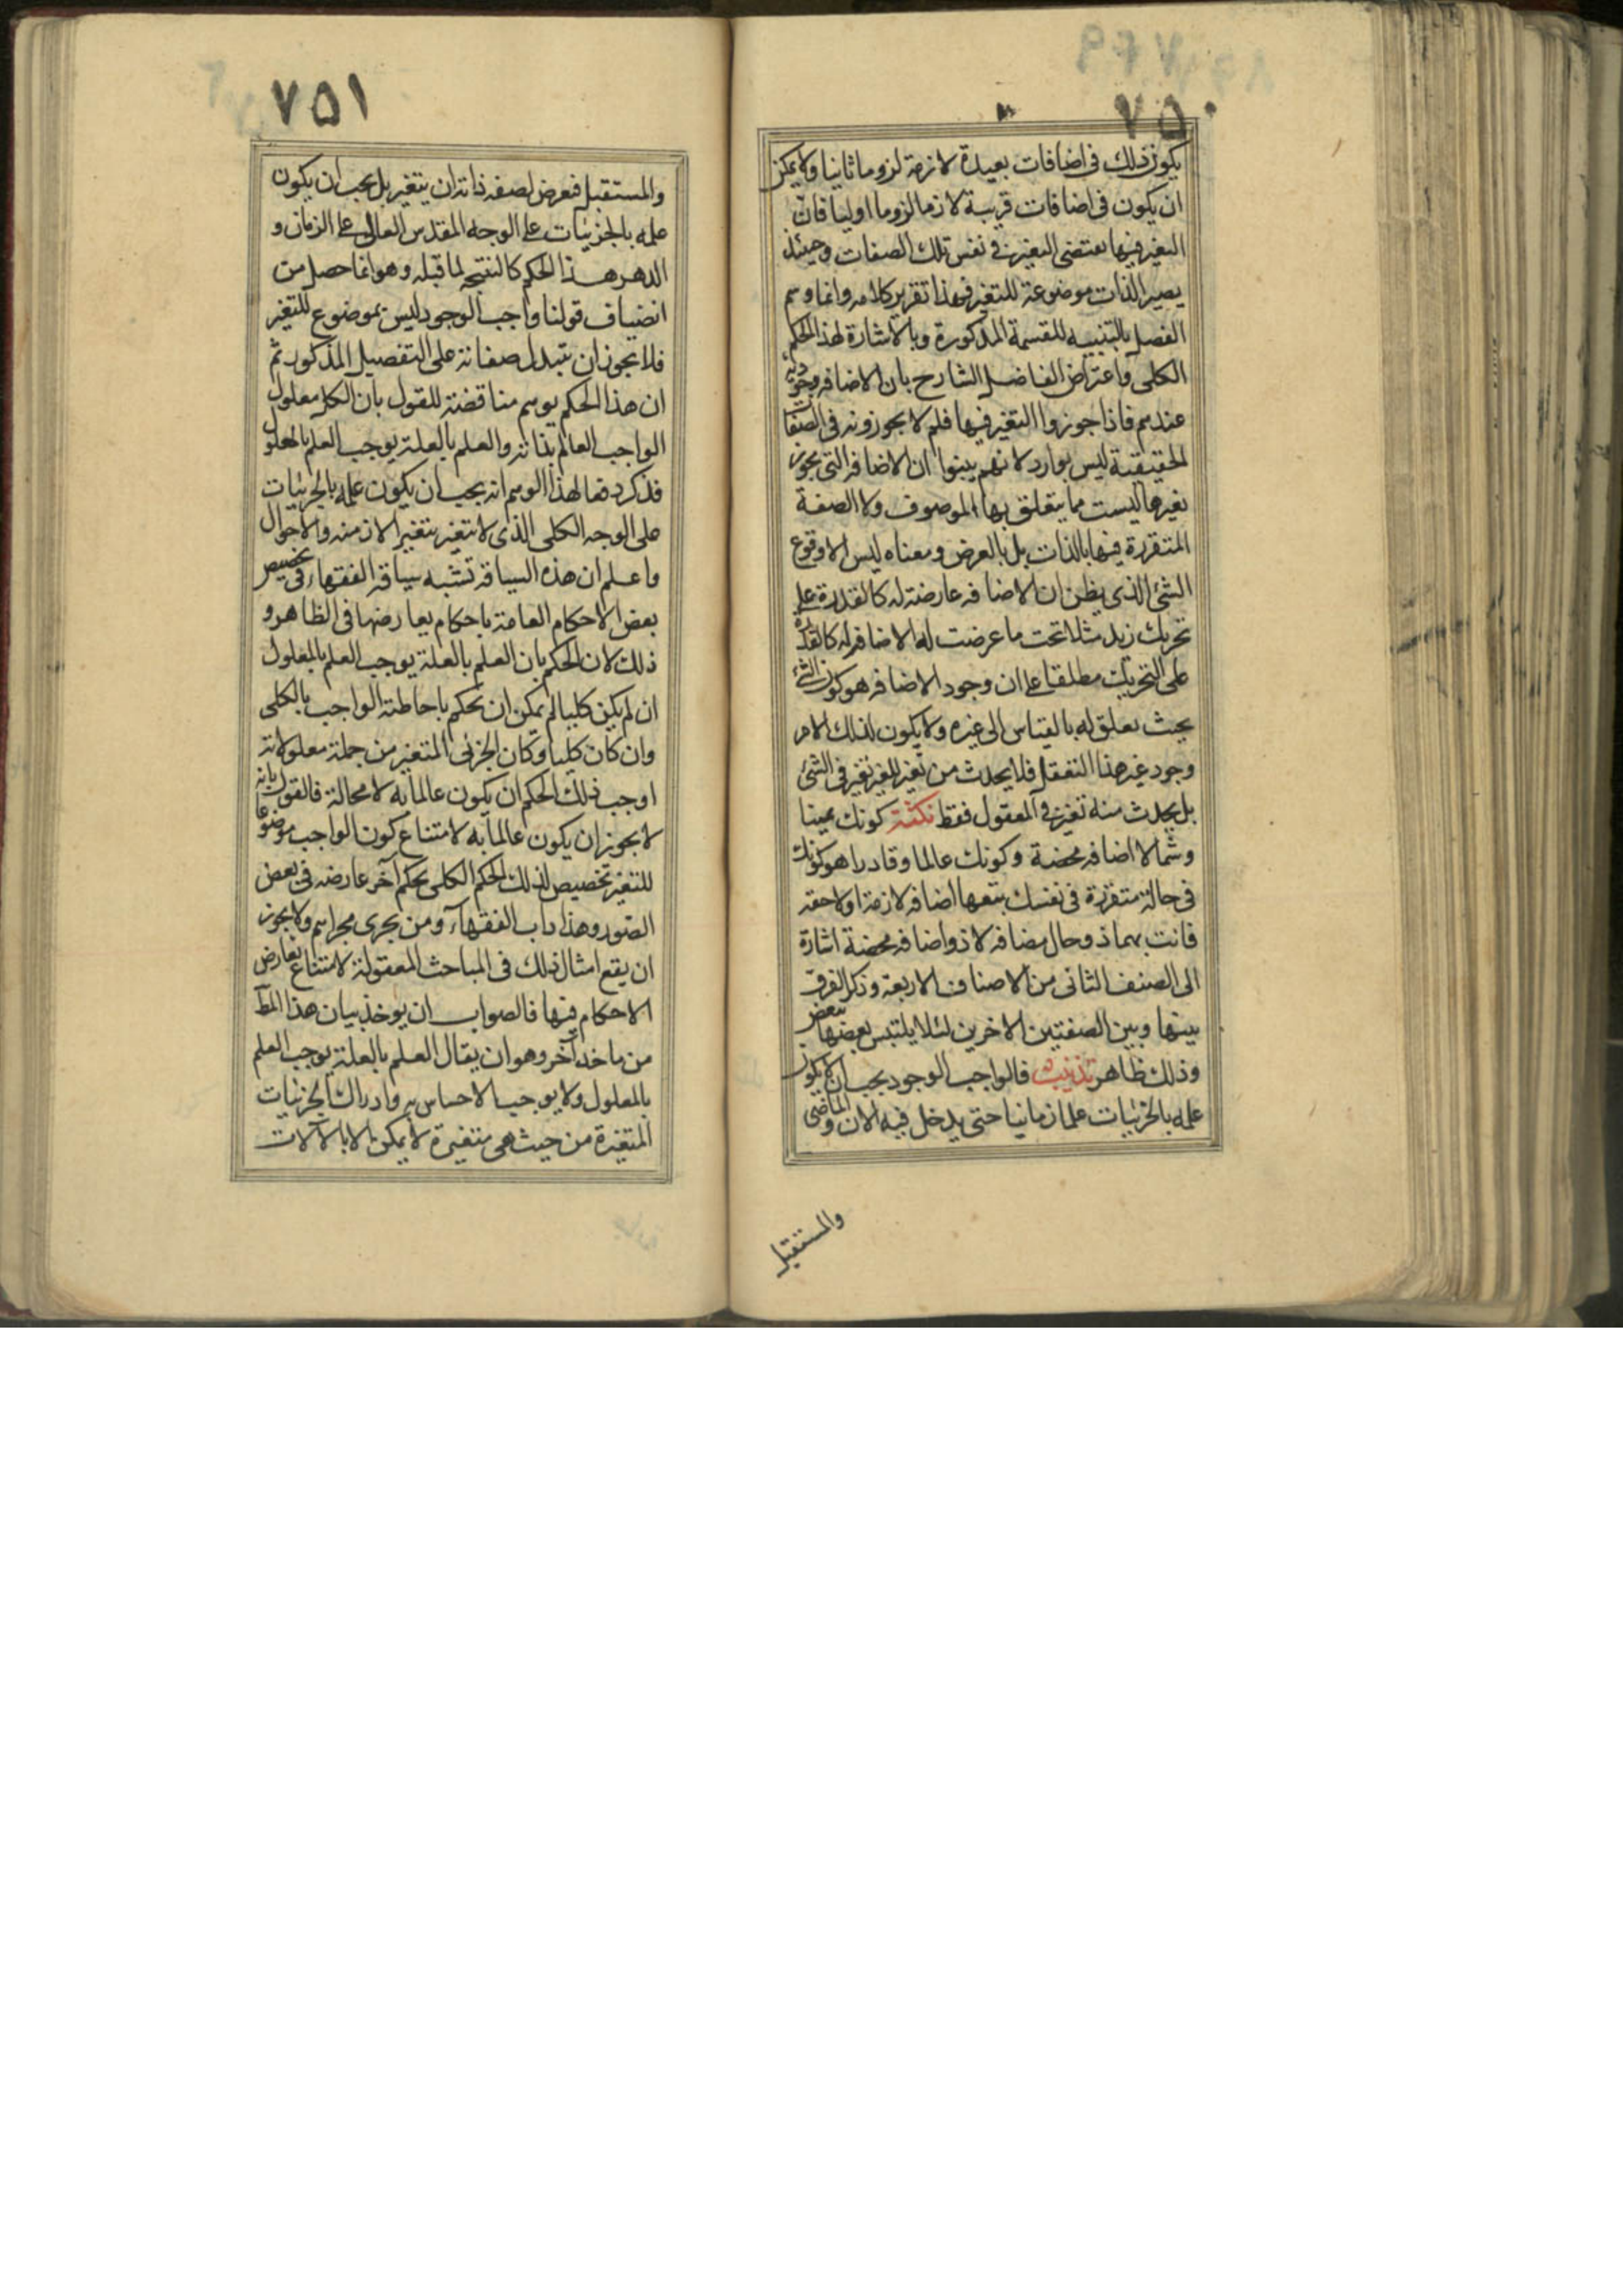 ٧٥٠
يكون ذلك في اضافات بعيدة لازمة لزوما ثانيا ولا يمكن
ان يكون في اضافات قريبة لازمة لزوما اوليا فان
التغير فيها يقتضى التغير في نفس تلك الصفات وحينئذ
يصير الذات موضوعة للتغير فهذا تقرير كلامه وانما وسم
الفصل بالتنبيه للقسمة المذكورة وبالاشارة لهذا الحكم
الكلى واعتراض الفاضل الشارح بان الاضافه وجودية
عندهم فاذا جوزوا التغير فيها فلم لا يجوزونه في الصفات
الحقيقية ليس بوارد لانهم بينوا ان الاضافه التى يجوز
تغيرها ليست مما يتعلق بها الموصوف ولا الصفة
المتقررة فيها بالذات بل بالعرض ومعناه ليس الا وقوع
الشئ الذى يظن ان الاضافه عارضة له كالقدرة على
تحريك زيد مثلا تحت ما عرضت له الاضافه له كالقدرة
على التحريك مطلقا على ان وجود الاضافه هو كون الشئ
بحيث يعلق له بالقياس الى غيره ولا يكون لذلك الامر
وجود غير هذا التعقل فلا يحدث من تغير الغير تغير في الشئ
بل يحدث منه تغير في المعقول فقط نكتة كونك يمينا
وشمالا اضافه محضة وكونك عالما وقادرا هو كونك
في حالة متقررة في نفسك يتبعها اضافه لازمة او لاحقه
فانت بهما ذو حال مضافه لا ذو اضافه محضة اشارة
الى الصنف الثانى من الاصناف الاربعة وذكر الفرق
بينها وبين الصفتين الاخرين لئلا يلتبس بعضها ببعض
وذلك ظاهر تذنيب فالواجب الوجود يجب ان لا يكون
علمه بالجزئيات علما زمانيا حتى يدخل فيه الان والماضى
والمستقبل
٧٥١
والمستقبل فيعرض لصفه ذاته ان يتغير بل يجب ان يكون
علمه بالجزئيات على الوجه المقدس العالى على الزمان و
الدهر هذا الحكم كالنتيجه لما قبله وهو انما حصل من
انضياف قولنا واجب الوجود ليس بموضوع للتغير
فلا يجوز ان يتبدل صفاته على التفصيل المذكور ثم
ان هذا الحكم يوهم مناقضة للقول بان الكل معلول
الواجب العالم بذاته والعلم بالعلة يوجب العلم بالمعلول
فذكر دفعا لهذا الوهم انه يجب ان يكون علمه بالجزئيات
على الوجه الكلى الذى لا يتغير بتغير الازمنه والاحوال
واعلم ان هذه السياقه تشبه سياقه الفقهاء في تخصيص
بعض الاحكام العامة باحكام يعارضها في الظاهر و
ذلك لان الحكم بان العلم بالعلة يوجب العلم بالمعلول
ان لم يكن كليا لم يمكن ان يحكم باحاطة الواجب بالكلى
وان كان كليا وكان الجزئى المتغير من جملة معلولاته
اوجب ذلك الحكم ان يكون عالما به لا محالة فالقول بانه
لا يجوز ان يكون عالما به لامتناع كون الواجب موضوعا
للتغير تخصيص لذلك الحكم الكلى بحكم آخر عارضه في بعض
الصور وهذا داب الفقهآء ومن يجرى مجراهم ولا يجوز
ان يقع امثال ذلك في المباحث المعقولة لامتناع تعارض
الاحكام فيها فالصواب ان يوخذ بيان هذا المط
من ماخذ آخر وهو ان يقال العلم بالعلة يوجب العلم
بالمعلول ولا يوجب الاحساس به وادراك الجزئيات
المتغيرة من حيث هى متغيرة لا يمكن الا بالآلات